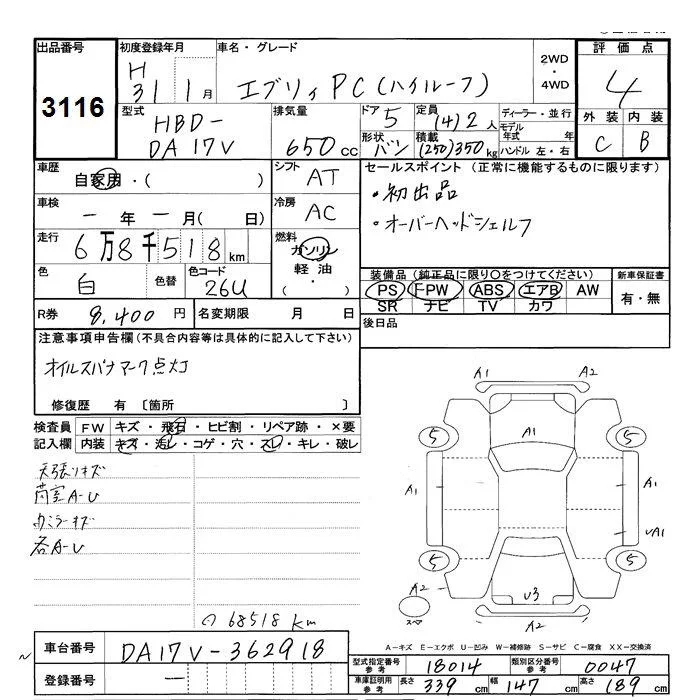 出品番号 初度登録年月 車名・グレード 評価点
3116
H 31 1月 エブリィ PC (ハイルーフ) 2WD ・ 4WD 4
型式 排気量 ドア 5 定員 (4) 2 人 ディーラー・並行 外装 内装
HBD- 形状 バン 積載 (250) 350 kg モデル年式 年 C B
DA17V 650 cc ハンドル 左・右
車歴 シフト セールスポイント(正常に機能するものに限ります)
自家用・( ) AT ・初出品
車検 冷房 ・オーバーヘッドシェルフ
ー 年 ー 月( 日) AC
走行 燃料
6万8千518 km ガソリン
色 色替 色コード 軽油・ 装備品(純正品に限り○をつけてください) 新車保証書
白 26U ( ) PS F-PW ABS エアB AW 有・無
SR ナビ TV カワ
R券 8,400 円 名変期限 月 日 後日品
注意事項申告欄(不具合内容等は具体的に記入して下さい)
オイルスパナマーク点灯
修復歴 有 〔箇所 〕
検査員 FW キズ・飛石・ヒビ割・リペア跡・×要
記入欄 内装 キズ・汚レ・コゲ・穴・スレ・キレ・破レ
天張リキズ
荷室A-U
ウミラーキズ
各A-U
68518 km
A1 A2
5 A1 5
A1 A1
uA1
5 5
A2 U3
A2
A-キズ E-エクボ U-凹み W-補修跡 S-サビ C-腐食 XX-交換済
車台番号 DA17V-362918
登録番号 ー
型式指定番号 参考 18014 類別区分番号 参考 0047
車庫証明用 参考 長さ 339 cm 幅 147 cm 高さ 189 cm